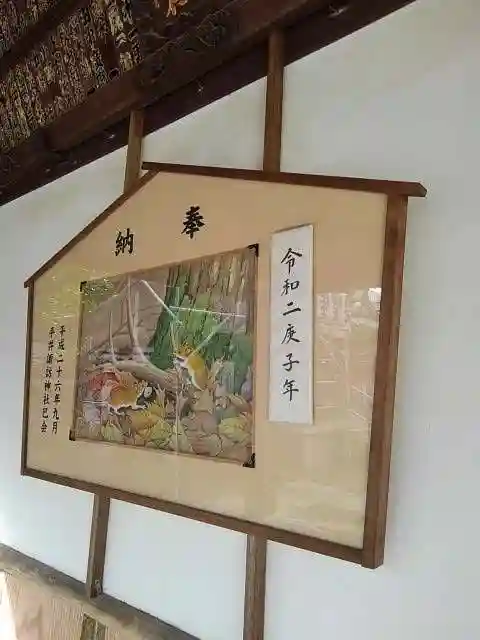 奉納
令和二庚子年
平成二十六年九月
平井諏訪神社巳会